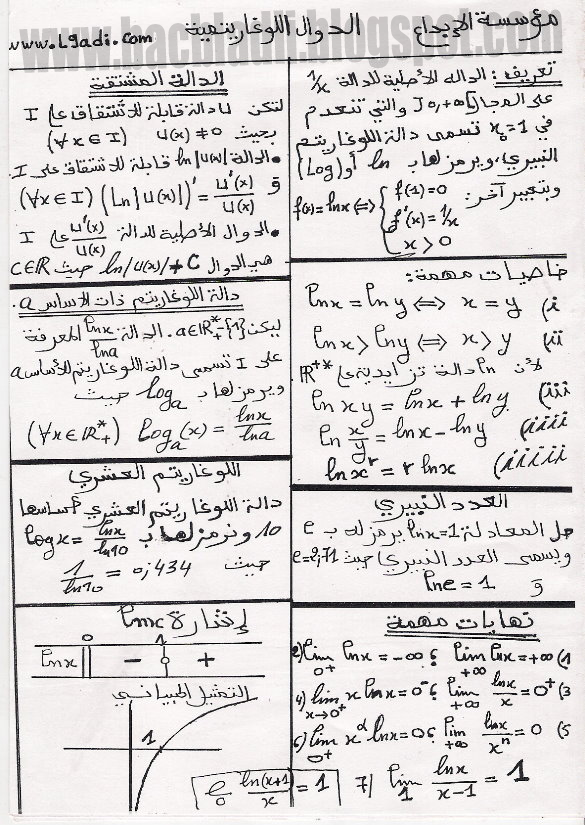 مؤسسة الإبداع
الدوال اللوغاريتمية
www.bacbladi.blogspot.com
www.L9adi.com
تعريف: الدالة الأصلية للدالة 1/x
على المجال ]0,+∞[ والتي تنعدم
في x₀=1 تسمى دالة اللوغاريتم
النبيري، ويرمز لها ب ln أو (Log)
وبتعبير آخر:
f(x)=lnx ⟺ { f(1)=0
f'(x)=1/x
x > 0
خاصيات مهمة:
lnx = lny ⟺ x = y (i
lnx > lny ⟺ x > y (ii
لأن ln دالة تزايدية على ℝ⁺*
ln xy = lnx + lny (iii
ln x/y = lnx - lny (iiii
lnxʳ = r lnx (iiiii
العدد النبيري
حل المعادلة lnx=1 يرمز له ب e
ويسمى العدد النبيري حيث e=2,71
و lne = 1
نهايات مهمة
2) lim 0⁺ lnx = -∞ ؛ lim +∞ lnx = +∞ (1
4) lim x→0⁺ x lnx = 0⁻ ؛ lim +∞ lnx/x = 0⁺ (3
6) lim 0⁺ x^α lnx = 0 ؛ lim +∞ lnx/xⁿ = 0 (5
7) lim 1 lnx/(x-1) = 1
الدالة المشتقة
لتكن U دالة قابلة للاشتقاق على I
بحيث U(x) ≠ 0 (∀x∈I)
• الدالة ln|U(x)| قابلة للاشتقاق على I.
و (∀x∈I) (Ln|U(x)|)' = U'(x)/U(x)
• الدوال الأصلية للدالة U'(x)/U(x) على I
هي الدوال ln|U(x)|+C حيث C∈ℝ
دالة اللوغاريتم ذات الاساس a.
ليكن a∈ℝ*₊-{1}. الدالة lnx/lna المعرفة
على I تسمى دالة اللوغاريتم للأساس a
ويرمز لها ب logₐ حيث
(∀x∈ℝ*₊) Logₐ(x) = lnx/lna
اللوغاريتم العشري
دالة اللوغاريتم العشري أساسها
10 ونرمز لها ب logx = lnx/ln10
حيث 1/ln10 = 0,434
إشارة lnx
0 1
lnx - 0 +
التمثيل المبياني
1
ln(x+1)/x = 1
0